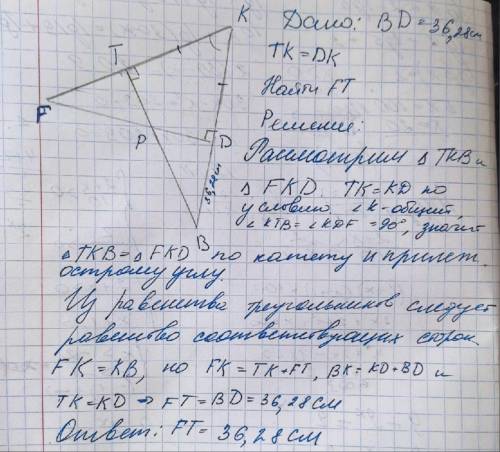 K
Дано: BD = 36,28 см
T
TK = DK
F
Найти FT
Решение:
P
D
36,28 см
B
Рассмотрим △ TKB и
△ FKD. TK = KD по
условию ∠K - общий,
∠KTB = ∠KDF = 90°, значит
△TKB = △FKD по катету и прилеж.
острому углу.
Из равенства треугольников следует
равенство соответствующих сторон
FK = KB, но FK = TK + FT, BK = KD + BD и
TK = KD ⇒ FT = BD = 36,28 см
Ответ: FT = 36,28 см